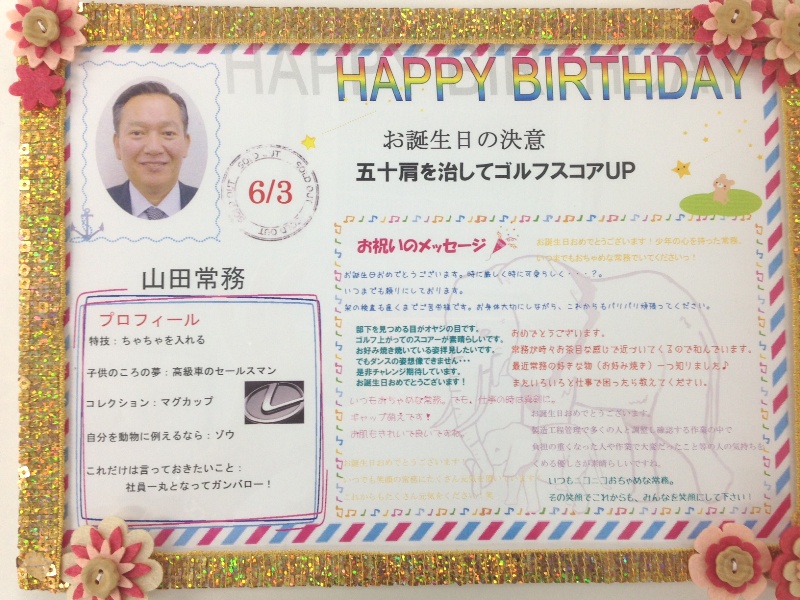 HAPPY BIRTHDAY
お誕生日の決意
五十肩を治してゴルフスコアUP
SOLD OUT
6/3
山田常務
プロフィール
特技：ちゃちゃを入れる
子供のころの夢：高級車のセールスマン
コレクション：マグカップ
自分を動物に例えるなら：ゾウ
これだけは言っておきたいこと：
社員一丸となってガンバロー！
お祝いのメッセージ
お誕生日おめでとうございます！少年の心を持った常務、
いつまでもおちゃめな常務でいてくださいっ！
お誕生日おめでとうございます。時に厳しく時に可愛らしく・・・？。
いつまでも頼りにしております。
架の検査も遅くまでご苦労様です。お身体大切にしながら、これからもバリバリ頑張ってください。
部下を見つめる目がオヤジの目です。
ゴルフ上がってのスコアーが素晴らしいです。
お好み焼き焼いている姿拝見したいです。
でもダンスの姿想像できません･･･
是非チャレンジ期待しています。
お誕生日おめでとうございます！
おめでとうございます。
常務が時々お茶目な感じで近づいてくるので和んでいます。
最近常務の好きな物（お好み焼き）一つ知りました♪
またいろいろと仕事で困ったら教えてください。
いつもおちゃめな常務。でも、仕事の時は真剣に。
ギャップ萌えです！
お誕生日おめでとうございます。
製造工程管理で多くの人と調整し確認する作業の中で
負担の重くなった人や作業で大変だったこと等の人の気持ちを
くめる優しさが素晴らしいですね。
お誕生日おめでとうございます
いつもニコニコおちゃめな常務。
その笑顔でこれからも、みんなを笑顔にして下さい！